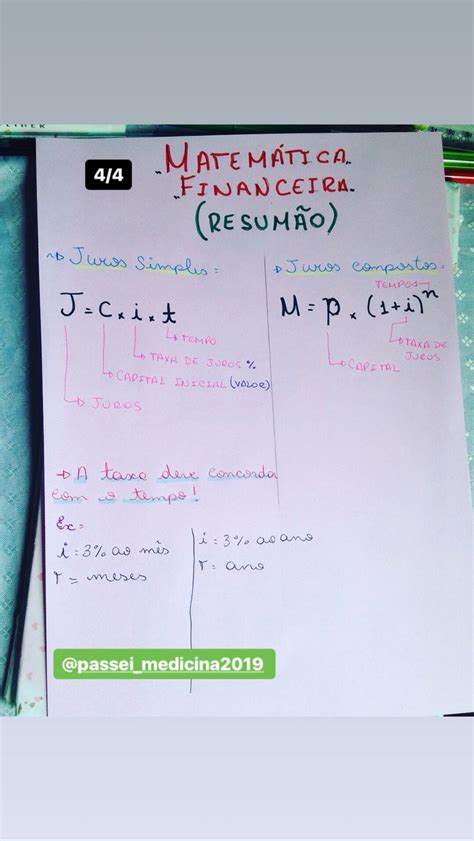 4/4
MATEMÁTICA
FINANCEIRA
(RESUMÃO)
Juros Simples =
J = C x i x t
TEMPO
TAXA DE JUROS %
CAPITAL INICIAL (VALOR)
JUROS
Juros compostos =
TEMPO
M = p x (1+i)^n
TAXA DE
JUROS
CAPITAL
A taxa deve concorda
com o tempo!
Ex:
i = 3% ao mês
T = meses
i = 3% ao ano
T = ano
@passei_medicina2019